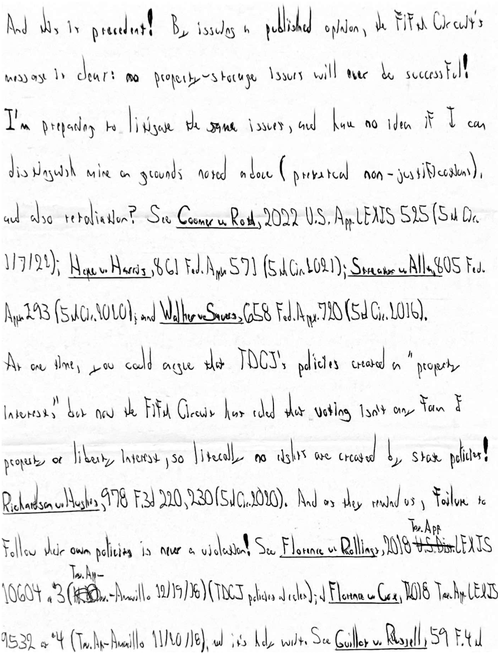 And this is precedent! By issuing a published opinion, the Fifth Circuit's
message is clear: no property-storage issues will ever be successful!
I'm preparing to litigate the same issues, and have no idea if I can
distinguish mine on grounds noted above (pretextual non-justifications),
and also retaliation? See Coomer v. Roth, 2022 U.S. App. LEXIS 525 (5th Cir.
1/7/22); Hope v. Harris, 861 Fed. Appx 571 (5th Cir. 2021); 805 Fed.
Appx 293 (5th Cir. 2020); and 658 Fed. Appx. 720 (5th Cir. 2016).
At one time, you could argue that TDCJ's policies created a "property
interest," but now the Fifth Circuit has ruled that voting isn't any form of
property or liberty interest, so literally no rights are created by state policies!
Richardson v. Hughs, 978 F.3d 220, 230 (5th Cir. 2020). And as they remind us, failure to
follow their own policies is never a violation! See Florence v. Rollings, 2018 Tex. App. LEXIS
10604 *3 (Tex. App-Amarillo 12/19/18) (TDCJ policies and rules); Florence v. Cox, 2018 Tex. App. LEXIS
9532 at *4 (Tex. Ap-Amarillo 11/20/18), See Guillot v. Russell, 59 F.4d